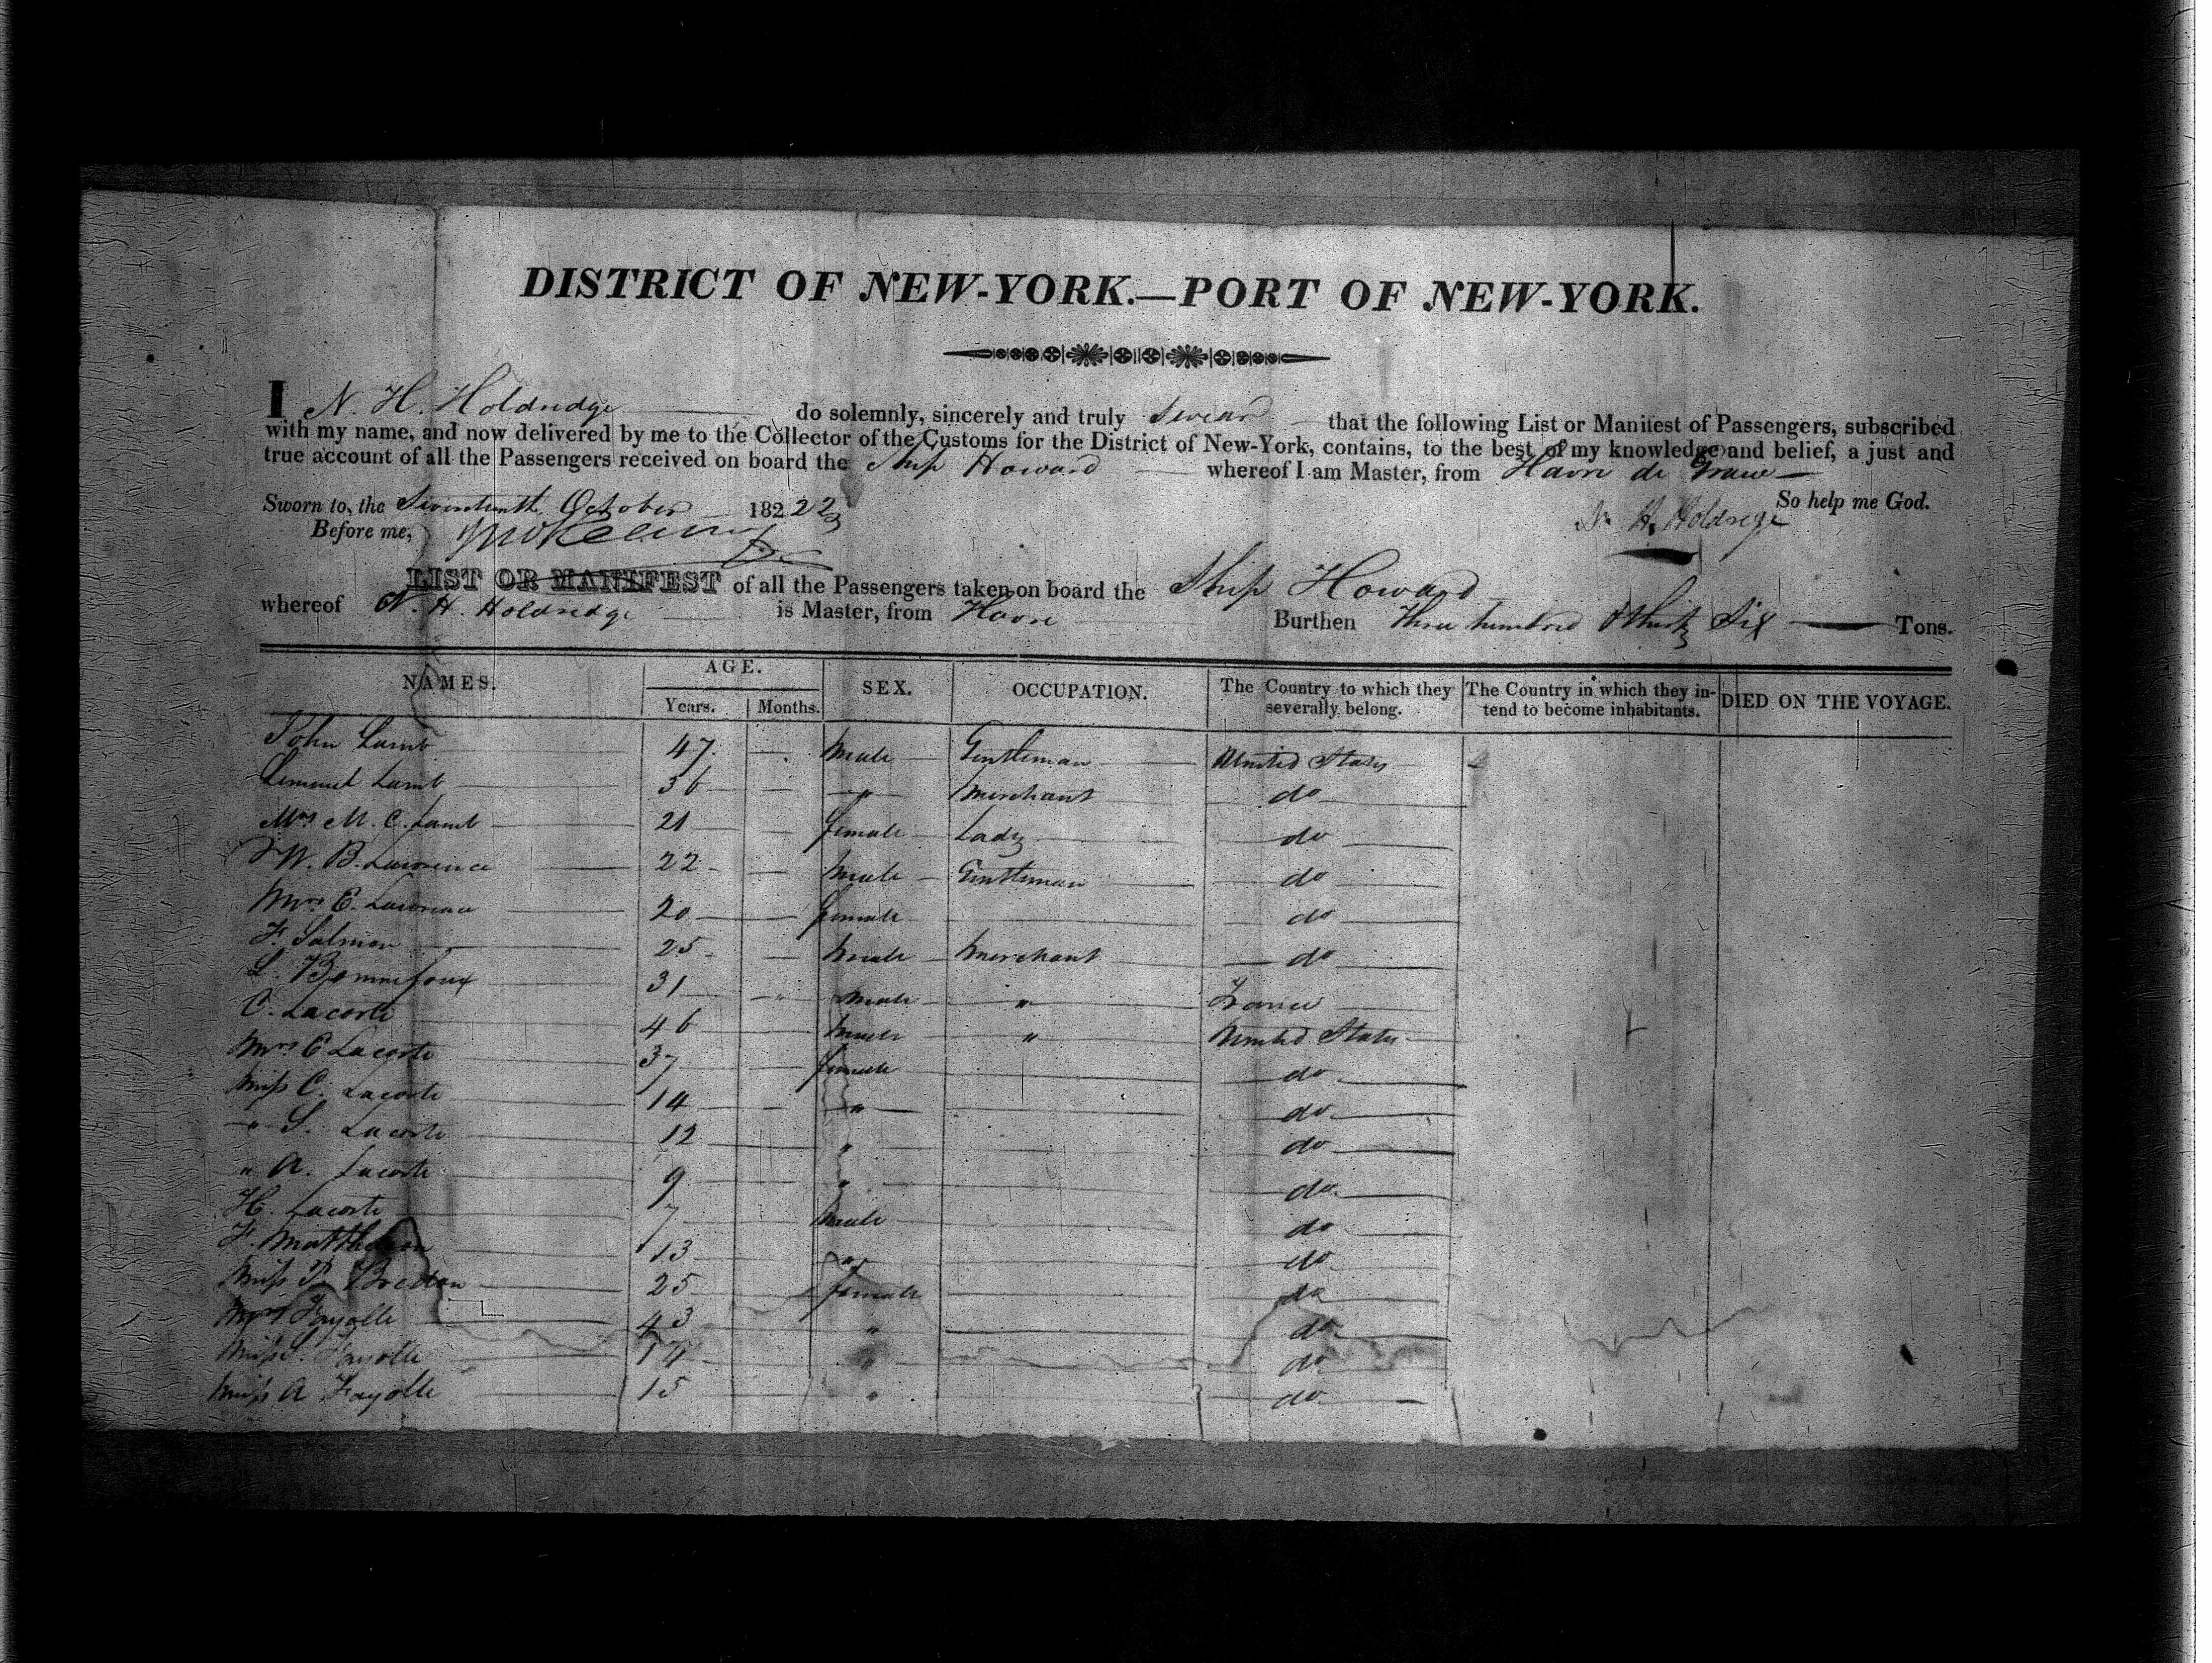 DISTRICT OF NEW-YORK.—PORT OF NEW-YORK.
I N. H. Holdredge do solemnly, sincerely and truly swear that the following List or Manifest of Passengers, subscribed
with my name, and now delivered by me to the Collector of the Customs for the District of New-York, contains, to the best of my knowledge and belief, a just and
true account of all the Passengers received on board the Ship Howard whereof I am Master, from Havre de Grace
So help me God.
Sworn to, the Seventeenth October 182
Before me,
N. H. Holdrege
LIST OR MANIFEST of all the Passengers taken on board the Ship Howard
whereof N. H. Holdredge is Master, from Havre Burthen Three hundred & thirty Six Tons.
NAMES. AGE. Years. Months. SEX. OCCUPATION. The Country to which they severally belong. The Country in which they intend to become inhabitants. DIED ON THE VOYAGE.
John Lamb 47 male Gentleman United States
Lemuel Lamb 36 " merchant do
Mrs M. C. Lamb 21 female Lady do
W. B. Lawrence 22 male Gentleman do
Mrs E. Lawrence 20 female do
F. Salmon 25 male merchant do
L. Bonnefoux 31 male " France
C. Lacoste 46 male " United States
Mrs C Lacoste 37 female do
Miss C. Lacoste 14 " do
" S. Lacoste 12 " do
" A. Lacoste 9 " do
H. Lacoste 7 male do
F. 13 " do
Miss 25 female do
Mrs Fayolle 43 " do
Miss Fayolle 14 " do
Miss A Fayolle 15 " do